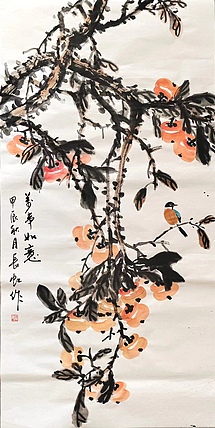 萬事如意
甲辰秋月長虹作